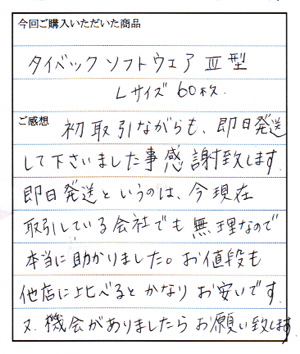 今回ご購入いただいた商品
タイベックソフトウェアⅢ型
Lサイズ 60枚.
ご感想 初取引ながらも、即日発送
して下さいました事感謝致します.
即日発送というのは、今現在
取引している会社でも無理なので
本当に助かりました。お値段も
他店に比べるとかなりお安いです.
又、機会がありましたらお願い致します